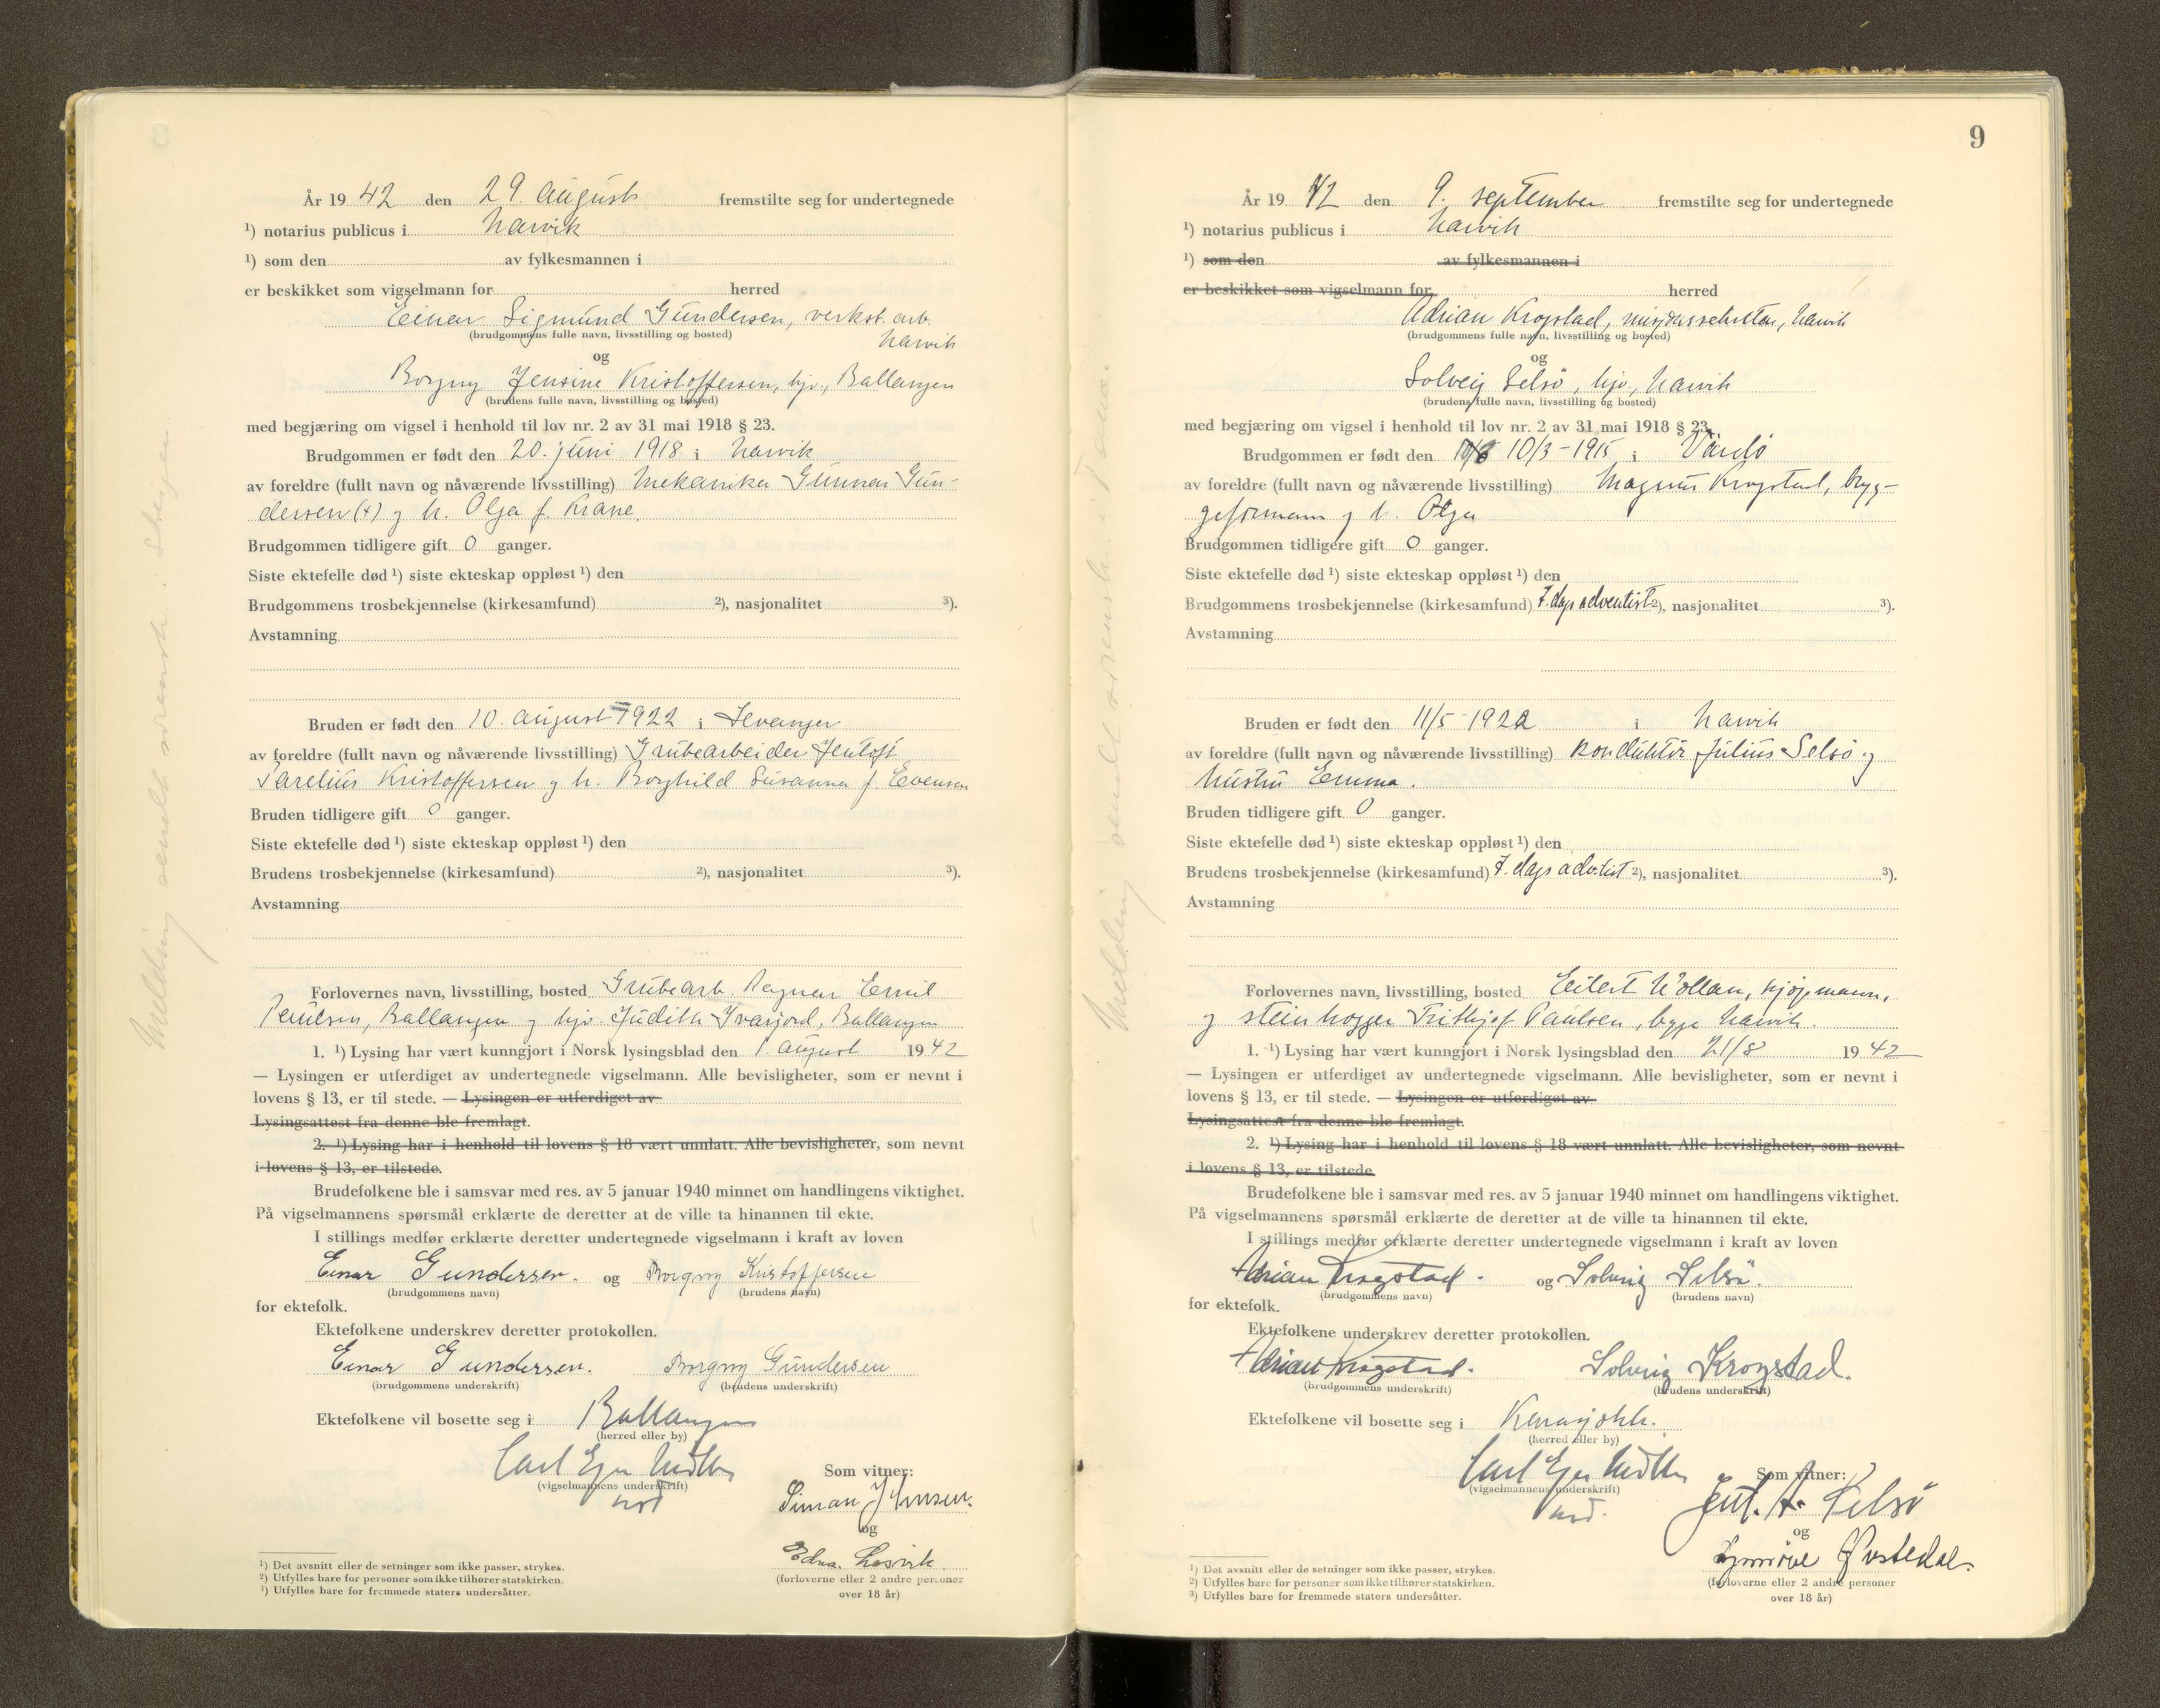 År 19 42 den 29. august fremstilte seg for undertegnede
¹) notarius publicus i Narvik
¹) som den av fylkesmannen i
er beskikket som vigselmann for herred
Einar Sigmund Gundersen, verkst.arb.
(brudgommens fulle navn, livsstilling og bosted) Narvik
og
Borgny Jensine Kristoffersen, hjv., Ballangen
(brudens fulle navn, livsstilling og bosted)
med begjæring om vigsel i henhold til lov nr. 2 av 31 mai 1918 § 23.
Brudgommen er født den 20. juni 1918 i Narvik
av foreldre (fullt navn og nåværende livsstilling) Mekaniker Gunnar Gun-
dersen (+) og h. Olga f. Krane.
Brudgommen tidligere gift 0 ganger.
Siste ektefelle død ¹) siste ekteskap oppløst ¹) den
Brudgommens trosbekjennelse (kirkesamfund) ²), nasjonalitet ³).
Avstamning
Bruden er født den 10. august 1922 i
av foreldre (fullt navn og nåværende livsstilling) Grubearbeider Jentoft
Parelius Kristoffersen og h. Borghild Susanna f. Evensen
Bruden tidligere gift 0 ganger.
Siste ektefelle død ¹) siste ekteskap oppløst ¹) den
Brudens trosbekjennelse (kirkesamfund) ²), nasjonalitet ³).
Avstamning
Forlovernes navn, livsstilling, bosted Grubearb. Ragnar Emil
Paulsen, Ballangen og hjv. Judith Kvasjord, Ballangen
1. ¹) Lysing har vært kunngjort i Norsk lysingsblad den 1. august 19 42
— Lysingen er utferdiget av undertegnede vigselmann. Alle bevisligheter, som er nevnt i
lovens § 13, er til stede. — Lysingen er utferdiget av
Lysingsattest fra denne ble fremlagt.
2. ¹) Lysing har i henhold til lovens § 18 vært unnlatt. Alle bevisligheter, som nevnt
i lovens § 13, er tilstede.
Brudefolkene ble i samsvar med res. av 5 januar 1940 minnet om handlingens viktighet.
På vigselmannens spørsmål erklærte de deretter at de ville ta hinannen til ekte.
I stillings medfør erklærte deretter undertegnede vigselmann i kraft av loven
Einar Gundersen. og Borgny Kristoffersen
(brudgommens navn) (brudens navn)
for ektefolk.
Ektefolkene underskrev deretter protokollen.
Einar Gundersen. Borgny Gundersen
(brudgommens underskrift) (brudens underskrift)
Ektefolkene vil bosette seg i Ballangen
(herred eller by)
Carl Ejer
(vigselmannens underskrift)
Som vitner:
Simon Johnsen.
og
Edna Losvik.
(forloverne eller 2 andre personer
over 18 år)
¹) Det avsnitt eller de setninger som ikke passer, strykes.
²) Utfylles bare for personer som ikke tilhører statskirken.
³) Utfylles bare for fremmede staters undersåtter.
Melding sendt sorenskr. i
9
År 19 42 den 9. september fremstilte seg for undertegnede
¹) notarius publicus i Narvik
¹) som den av fylkesmannen i
er beskikket som vigselmann for herred
Adrian Krogstad, misjonssekretær, Narvik
(brudgommens fulle navn, livsstilling og bosted)
og
Solveig Selsö, hjv., Narvik
(brudens fulle navn, livsstilling og bosted)
med begjæring om vigsel i henhold til lov nr. 2 av 31 mai 1918 § 23.
Brudgommen er født den 10/3-1915 i Vardö
av foreldre (fullt navn og nåværende livsstilling) Magnus Krogstad, bryg-
geformann og h. Olga
Brudgommen tidligere gift 0 ganger.
Siste ektefelle død ¹) siste ekteskap oppløst ¹) den
Brudgommens trosbekjennelse (kirkesamfund) 7. dags adventist ²), nasjonalitet ³).
Avstamning
Bruden er født den 11/5-1922 i Narvik
av foreldre (fullt navn og nåværende livsstilling) konduktör Julius Selsö og
hustru Emma.
Bruden tidligere gift 0 ganger.
Siste ektefelle død ¹) siste ekteskap oppløst ¹) den
Brudens trosbekjennelse (kirkesamfund) 7. dags advtist ²), nasjonalitet ³).
Avstamning
Forlovernes navn, livsstilling, bosted Eilert Wollan, kjöpmann,
og steinhogger Frithjof Paulsen, begge Narvik.
1. ¹) Lysing har vært kunngjort i Norsk lysingsblad den 21/8 19 42
— Lysingen er utferdiget av undertegnede vigselmann. Alle bevisligheter, som er nevnt i
lovens § 13, er til stede. — Lysingen er utferdiget av
Lysingsattest fra denne ble fremlagt.
2. ¹) Lysing har i henhold til lovens § 18 vært unnlatt. Alle bevisligheter, som nevnt
i lovens § 13, er tilstede
Brudefolkene ble i samsvar med res. av 5 januar 1940 minnet om handlingens viktighet.
På vigselmannens spørsmål erklærte de deretter at de ville ta hinannen til ekte.
I stillings medfør erklærte deretter undertegnede vigselmann i kraft av loven
Adrian Krogstad. og Solveig Selsö.
(brudgommens navn) (brudens navn)
for ektefolk.
Ektefolkene underskrev deretter protokollen.
Adrian Krogstad. Solveig Krogstad.
(brudgommens underskrift) (brudens underskrift)
Ektefolkene vil bosette seg i
(herred eller by)
Carl Ejer
(vigselmannens underskrift)
Som vitner:
Jul. A. Selsö
og
Synnöve Østedal.
(forloverne eller 2 andre personer
over 18 år)
¹) Det avsnitt eller de setninger som ikke passer, strykes.
²) Utfylles bare for personer som ikke tilhører statskirken.
³) Utfylles bare for fremmede staters undersåtter.
Melding sendt sorenskr. i Tana.